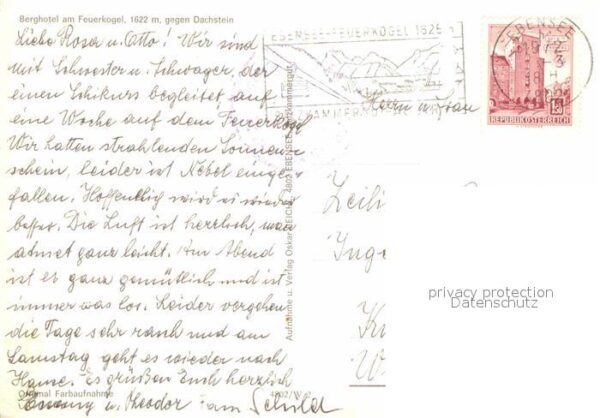 Berghotel am Feuerkogel, 1622 m, gegen Dachstein
Liebe Rosa u. Otto! Wir sind
mit Schwester u. Schwager, der
einen Schikurs begleitet, auf
eine Woche auf dem Feuerkogel
Wir hatten strahlenden Sonnen-
schein, leider ist Nebel einge-
fallen. Hoffentlich wird es wieder
besser. Die Luft ist herrlich, man
atmet ganz leicht. Am Abend
ist es ganz gemütlich und ist
immer was los. Leider vergehen
die Tage sehr rasch und am
Samstag geht es wieder nach
Hause. Es grüßen Euch herzlich
u. Theodor
Original Farbaufnahme
4802/W
Aufnahme u. Verlag Oskar 4802 EBENSEE, Salzkammergut
EBENSEE-FEUERKOGEL 1625
EBENSEE
1972
REPUBLIK ÖSTERREICH
Herrn u. Frau
Ing
W
privacy protection
Datenschutz